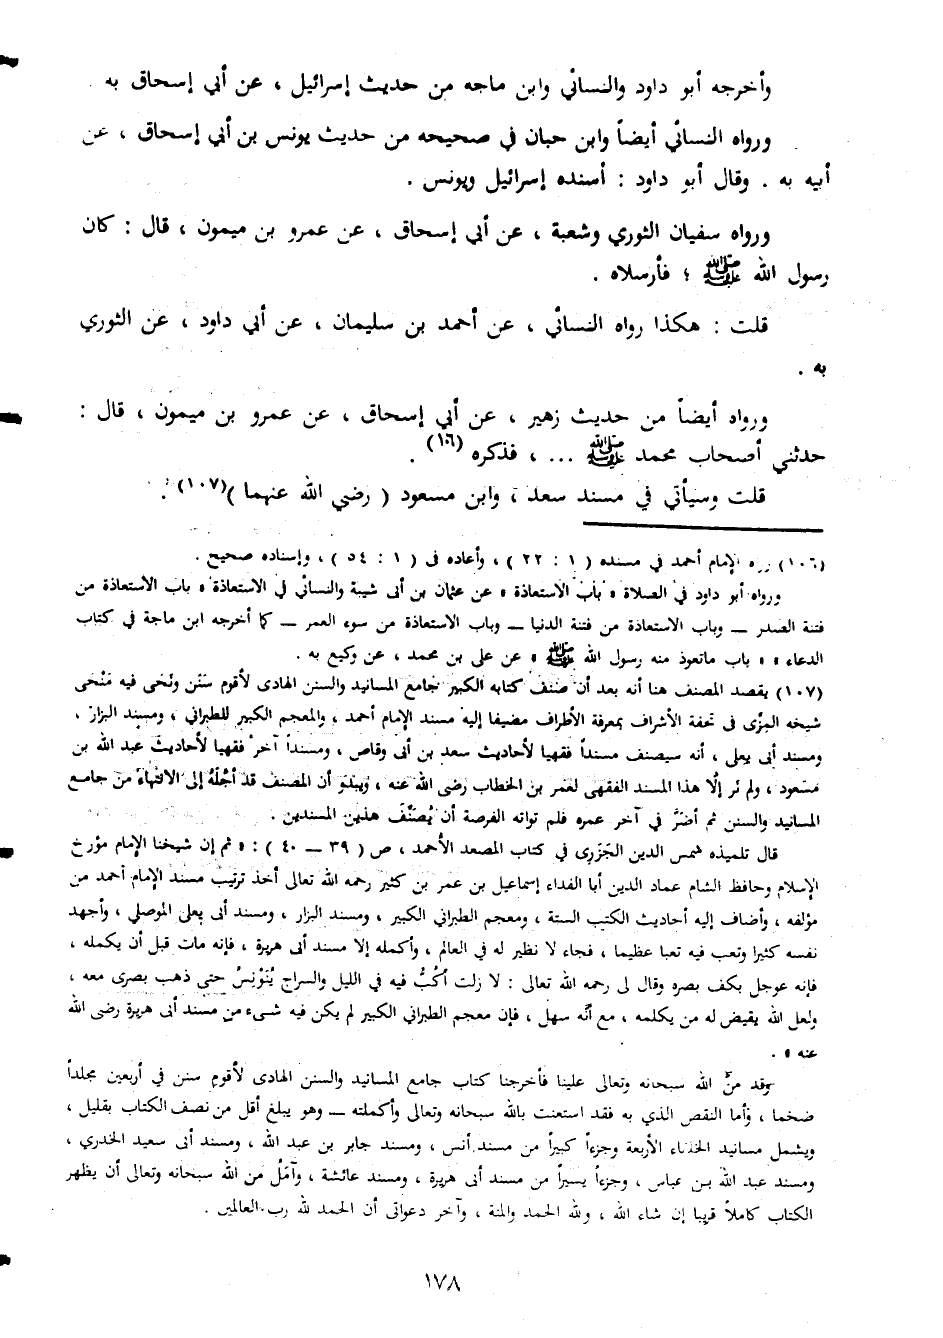 وأخرجه أبو داود والنسائي وابن ماجه من حديث إسرائيل ، عن أبي إسحاق به .
ورواه النسائي أيضاً وابن حبان في صحيحه من حديث يونس بن أبي إسحاق ، عن
أبيه به . وقال أبو داود : أسنده إسرائيل ويونس .
ورواه سفيان الثوري وشعبة ، عن أبي إسحاق ، عن عمرو بن ميمون ، قال : كان
رسول الله ﷺ ؛ فأرسلاه .
قلت : هكذا رواه النسائي ، عن أحمد بن سليمان ، عن أبي داود ، عن الثوري
به .
ورواه أيضاً من حديث زهير ، عن أبي إسحاق ، عن عمرو بن ميمون ، قال :
حدثني أصحاب محمد ﷺ ... ، فذكره (١٠٦) .
قلت وسيأتي في مسند سعد ، وابن مسعود ( رضي الله عنهما )(١٠٧) .
(١٠٦) رواه الإمام أحمد في مسنده ( ١ : ٢٢ ) ، وأعاده فى ( ١ : ٥٤ ) ، وإسناده صحيح .
ورواه أبو داود في الصلاة « باب الاستعاذة » عن عثمان بن أبى شيبة والنسائي في الاستعاذة « باب الاستعاذة من
فتنة الصدر ــ وباب الاستعاذة من فتنة الدنيا ــ وباب الاستعاذة من سوء العمر ــ كما أخرجه ابن ماجة في كتاب
الدعاء » « باب ماتعوذ منه رسول الله ﷺ » عن على بن محمد ، عن وكيع به .
(١٠٧) يقصد المصنف هنا أنه بعد أن صَنَف كتابه الكبير جامع المسانيد والسنن الهادى لأقوم سَنَن ونَحَى فيه مَنْحَى
شيخه المِزِّى فى تحفة الأشراف بمعرفة الأطراف مضيفا إليه مسند الإمام أحمد ، والمعجم الكبير للطبرانى ، ومسند البزار ،
ومسند أبى يعلى ، أنه سيصنف مسنداً فقهيا لأحاديث سعد بن أبى وقاص ، ومسنداً آخر فقهيا لأحاديث عبد الله بن
مسعود ، ولم نر إلّا هذا المسند الفقهى لعمر بن الخطاب رضى الله عنه ، ويبدو أن المصنف قد أجَّلَهُ إلى الانتهاء من جامع
المسانيد والسنن ثم أضرَّ في آخر عمره فلم تواته الفرصة أن يُصَنِّفَ هذين المسندين .
قال تلميذه شمس الدين الجَزَرِى في كتاب المصعد الأحمد ، ص ( ٣٩ ــ ٤٠ ) : « ثم إن شيخنا الإمام مؤرخ
الإسلام وحافظ الشام عماد الدين أبا الفداء إسماعيل بن عمر بن كثير رحمه الله تعالى أخذ ترتيب مسند الإمام أحمد من
مؤلفه ، وأضاف إليه أحاديث الكتب الستة ، ومعجم الطبراني الكبير ، ومسند البزار ، ومسند أبى يعلى الموصلي ، وأجهد
نفسه كثيرا وتعب فيه تعبا عظيما ، فجاء لا نظير له في العالم ، وأكمله إلا مسند أبى هريرة ، فإنه مات قبل أن يكمله ،
فإنه عوجل بكف بصره وقال لى رحمه الله تعالى : لا زلت أكُبُّ فيه في الليل والسراج يُنَوْنِسُ حتى ذهب بصرى معه ،
ولعل الله يقيض له من يكلمه ، مع أنَّه سهل ، فإن معجم الطبراني الكبير لم يكن فيه شىء من مسند أبى هريرة رضى الله
عنه » .
وقد منَّ الله سبحانه وتعالى علينا فأخرجنا كتاب جامع المسانيد والسنن الهادى لأقوم سنن في أربعين مجلداً
ضخما ، وأما النقص الذي به فقد استعنت بالله سبحانه وتعالى وأكملته ــ وهو يبلغ أقل من نصف الكتاب بقليل ،
ويشمل مسانيد الخلفاء الأربعة وجزءاً كبيراً من مسند أنس ، ومسند جابر بن عبد الله ، ومسند أبى سعيد الخدري ،
ومسند عبد الله بن عباس ، وجزءاً يسيراً من مسند أبى هريرة ، ومسند عائشة ، وآمُلُ من الله سبحانه وتعالى أن يظهر
الكتاب كاملاً قريبا إن شاء الله ، ولله الحمد والمنة ، وآخر دعواتى أن الحمد لله رب العالمين .
١٧٨